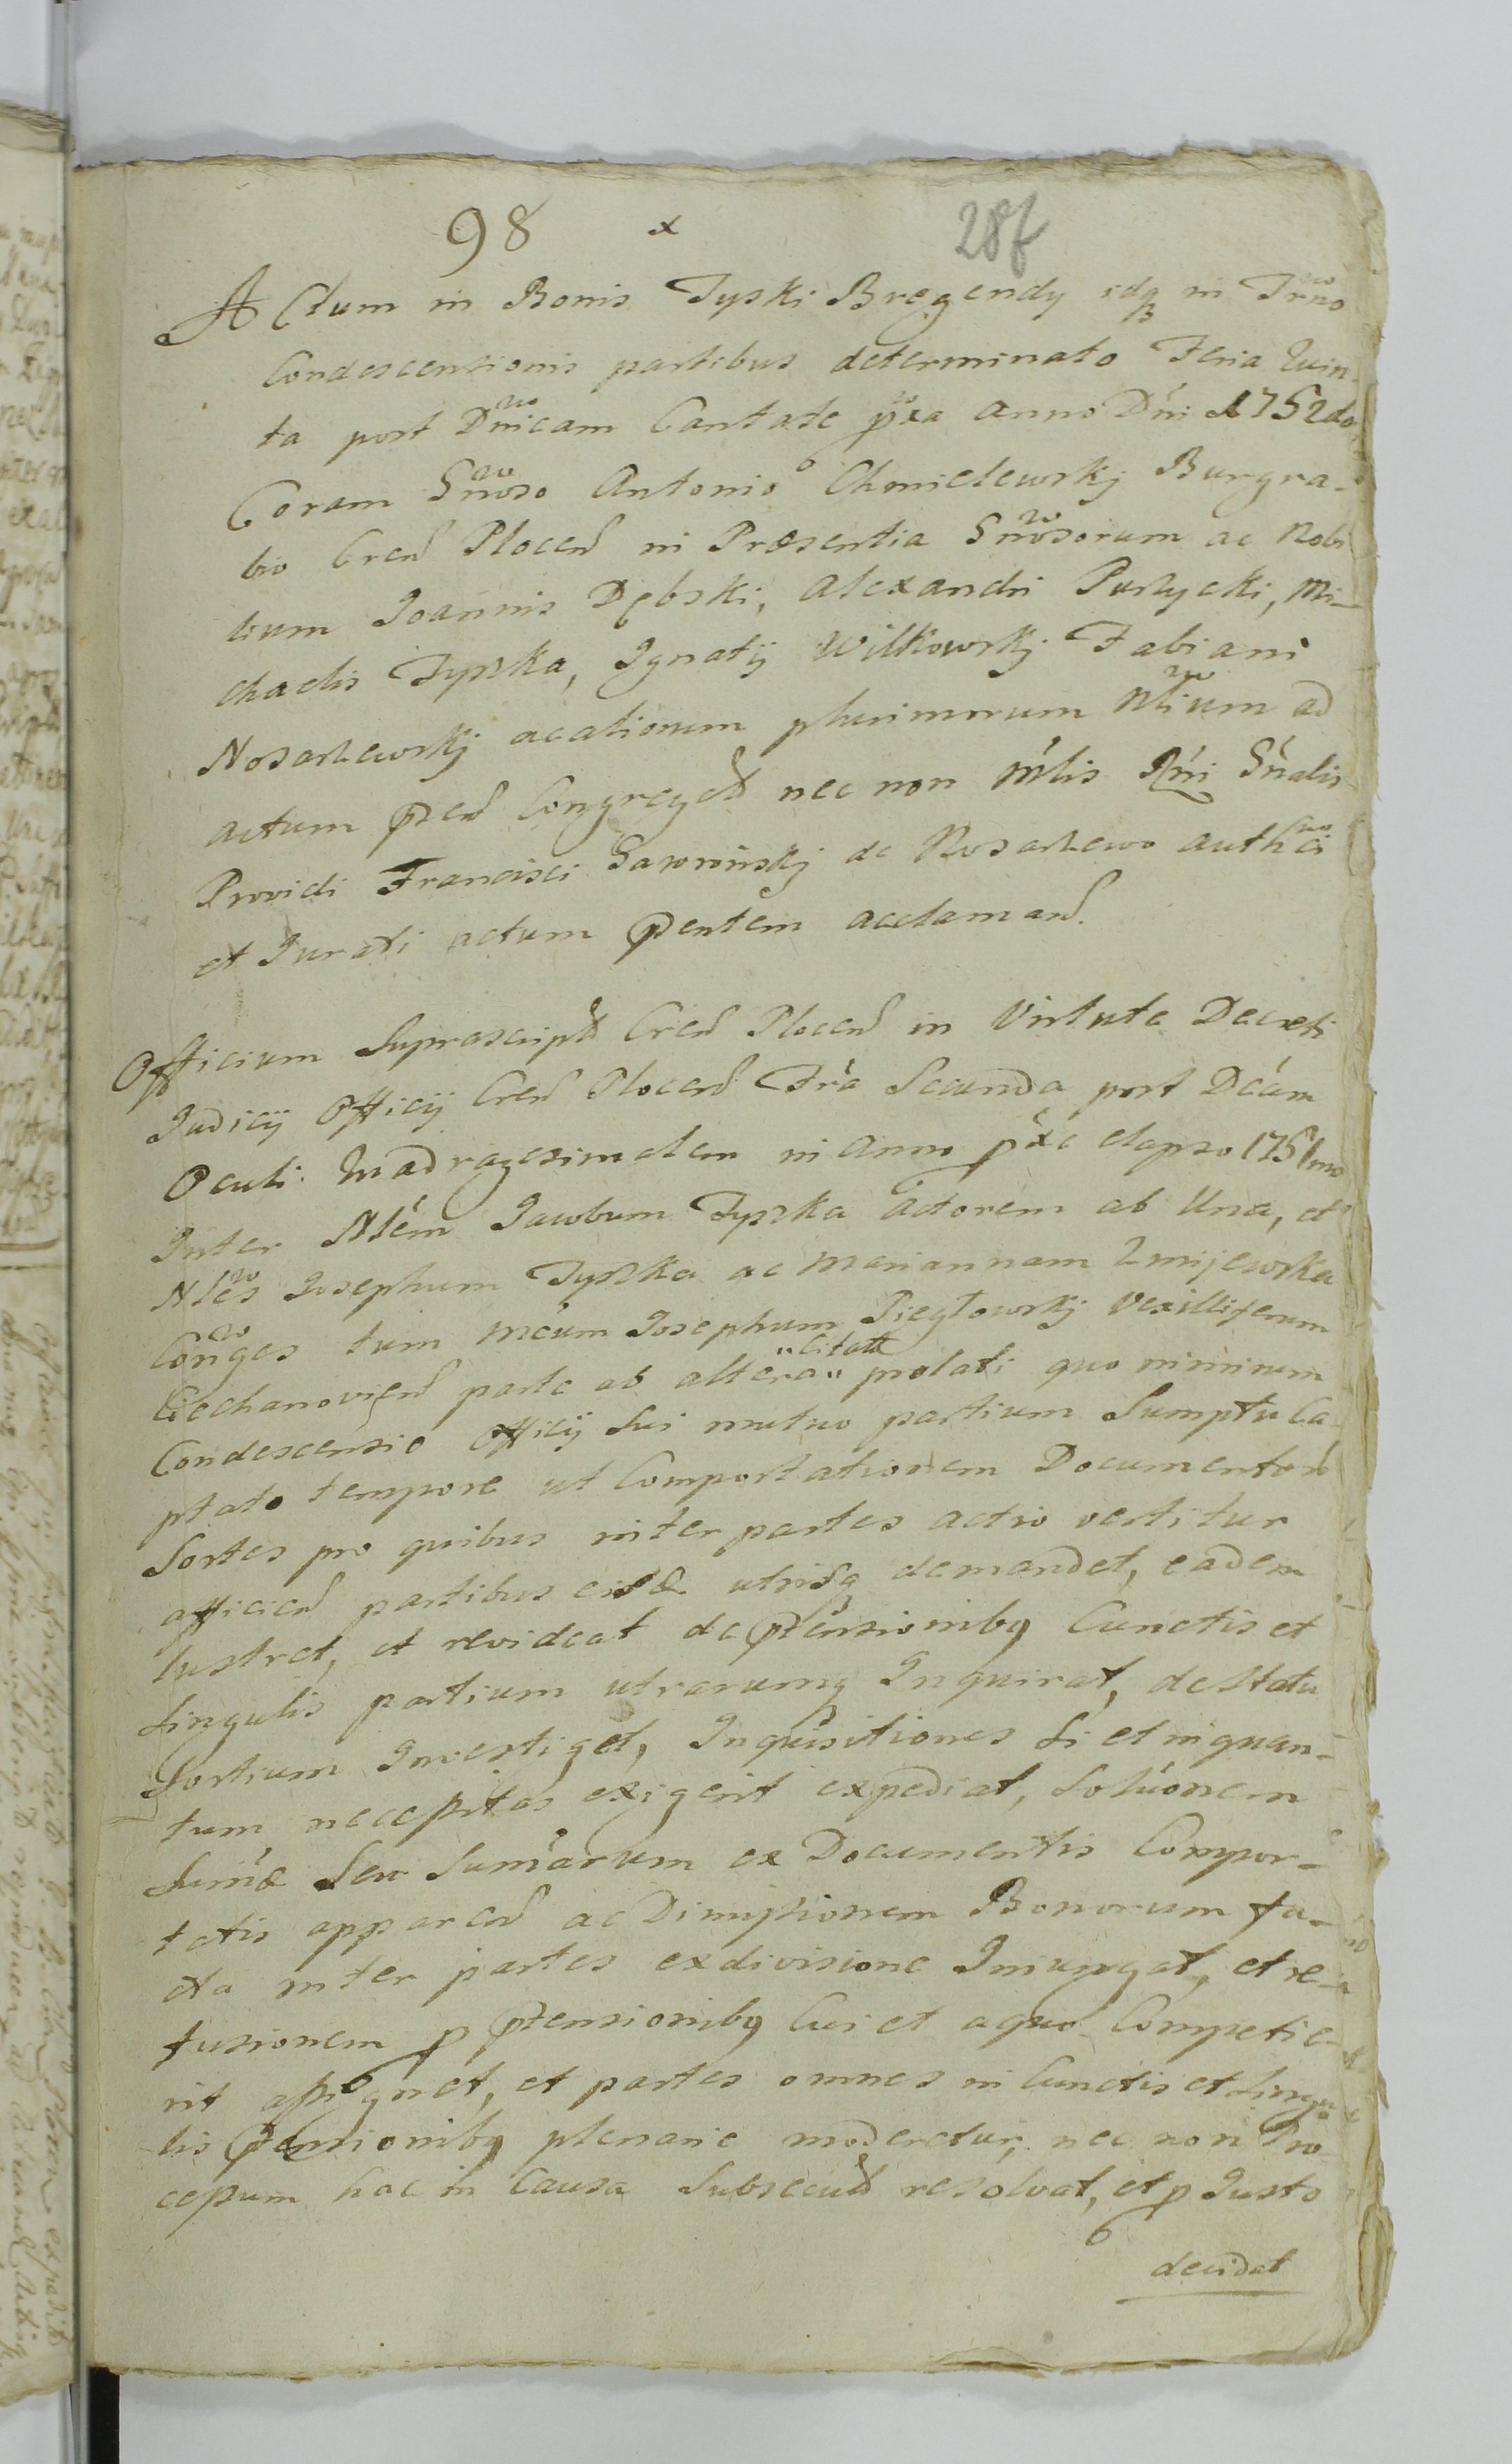 98 x 28f
Actum in Bonis Tyski Bręgendy idq in Trno
Condescensionis partibus determinato Feria Quin-
ta post Dnicam Cantate pxa Anno Dni 1752do
Coram Gnoso Antonio Chmielewskj Burgra-
bio Cren Plocen in Præsentia Gnosorum ac Nobi
lium Joannis Dębski, Alexandri Purzycki, Mi-
chaelis Tyszka, Ignatij Wilkowskj Fabiani
Nosarzewskj ac aliorum plurimorum Nlium ad
actum psen Congregat nec non Mlis Rni Gnalis
Providi Francisci Saworinskj de Nosarzewo authci
et Jurati actum pentem acclaman.
Officium Suprascript Cren Plocen in Virtute Decreti
Judicij Officij Cren Plocen Fria Secunda post Dcam
Oculi Quadragesimalem in Anno pxe elapso 1751mo
Inter Nlem Jacobum Tyszka Actorem ab Una, et
Nles Josephum Tyszka ac Mariannam Zmijewska
Conges tum Mcum Josephum Piegłowskj Vexilliferum
Ciechanovien parte ab altera "Citat" prolati quo nimirum
Condescensio Officij Sui mutuo partium Sumptu Ca-
ptato tempore ut Comportationem Documentor
Sortes pro quibus inter partes actio vertitur
afficien partibus eisd utrisq demandet, eadem
lustret, et revideat de ptensionibq Cunctis et
Singulis partium utrarumq Inquirat, de Statu
Sortium Investiget, Inquisitiones Si et inquan-
tum necessitas exigerit expediat, Soluonem
Sumæ Seu Sumarum ex Documentis Compor-
tatis apparen ac Dimissionem Bonorum fa-
cta inter partes exdivisione Iniungat, et re-
fusionem p ptensionibq Cui et aquo Competie-
rit assignet, et partes omnes in Cunctis et Singu
lis ptensionibq plenarie moderetur, nec non Pro
cessum hac in Causa Subsecut resolvat, et p Justo
decidat